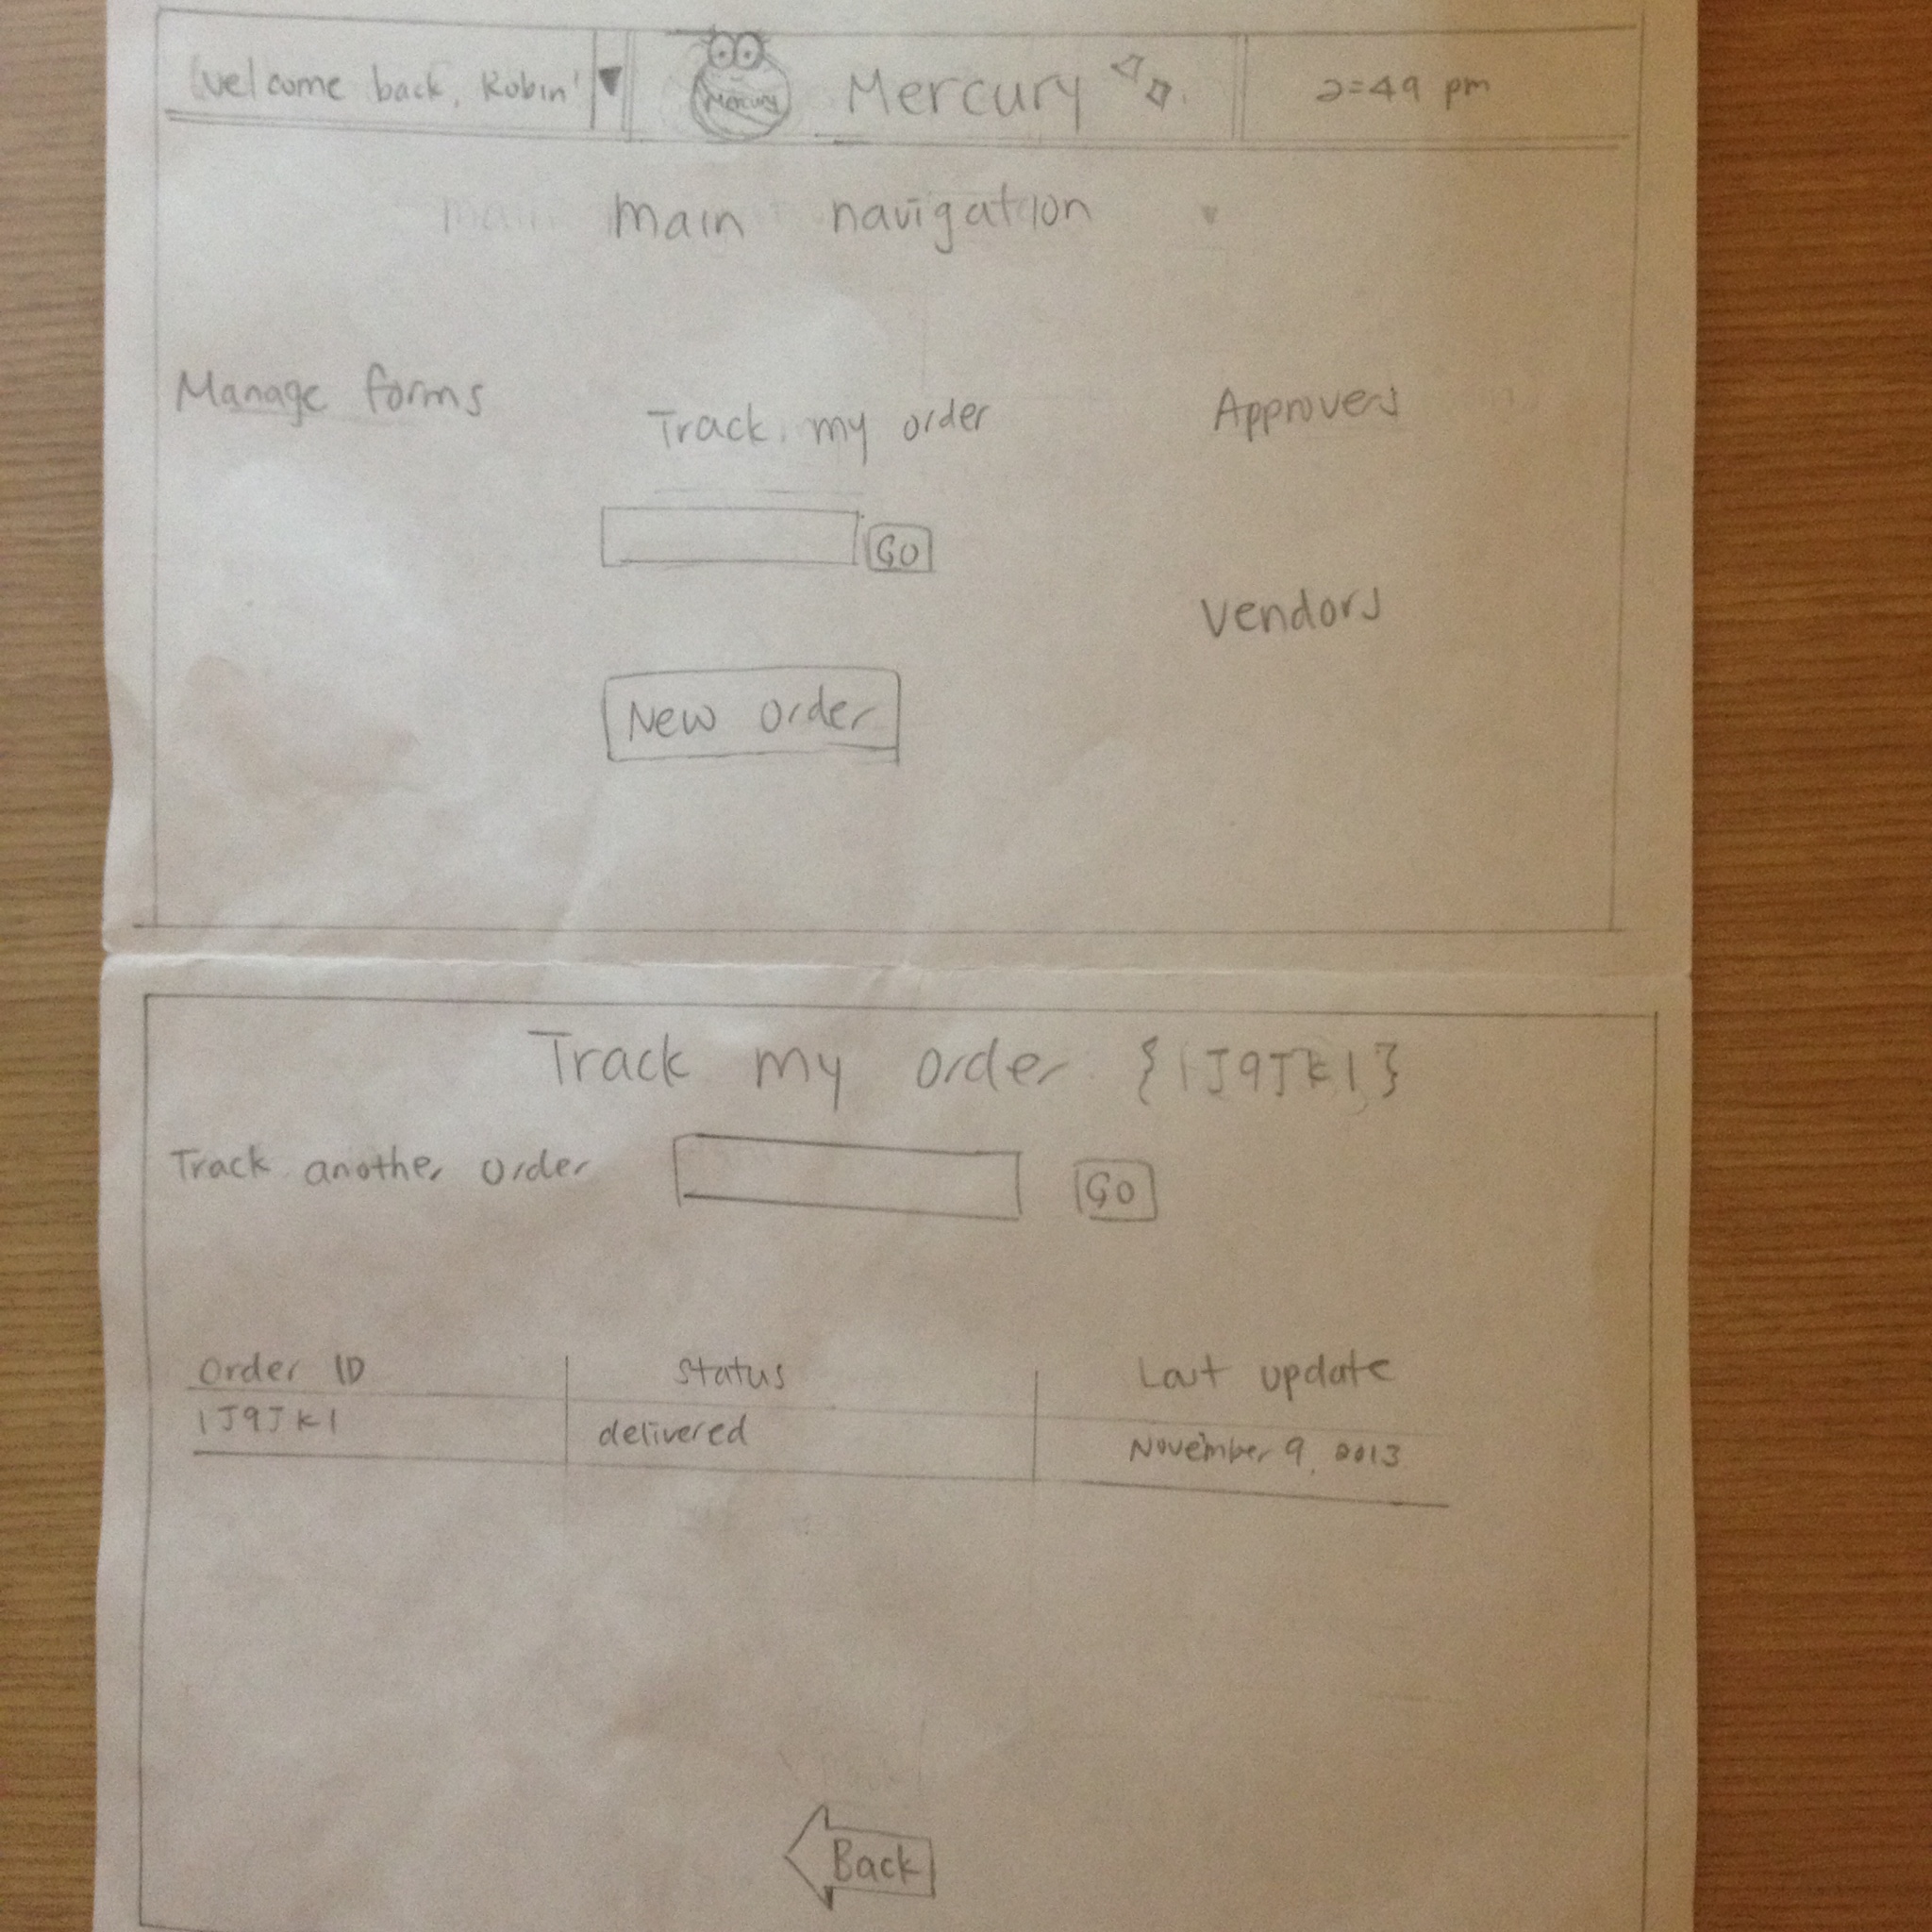 Welcome back, Robin!
Mercury
Mercury
2:49 pm
main main navigation
Manage forms
Track my order
Approvers
GO
Vendors
New order
Track my order {1J9JK1}
Track another order
GO
Order ID Status Last update
1J9JK1 delivered November 9, 2013
Back